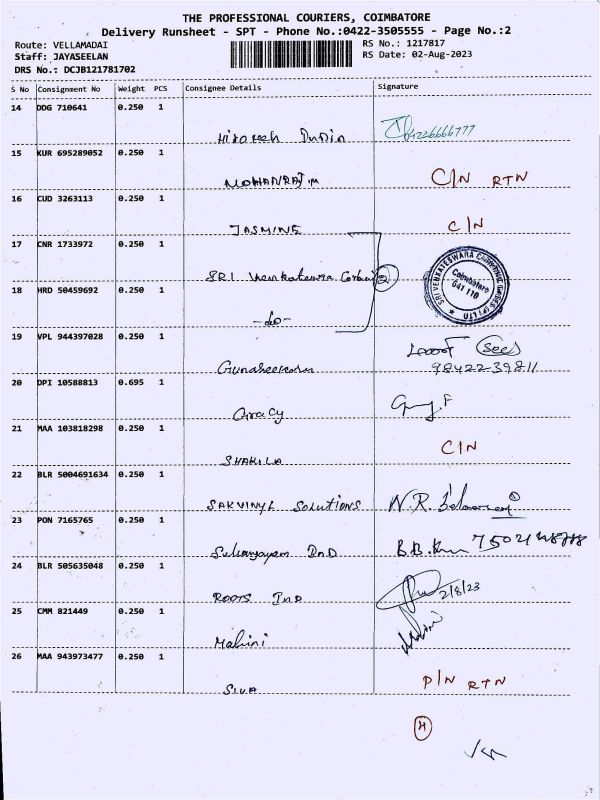 THE PROFESSIONAL COURIERS, COIMBATORE
Delivery Runsheet - SPT - Phone No.:0422-3505555 - Page No.:2
Route: VELLAMADAI RS No.: 1217817
Staff: JAYASEELAN RS Date: 02-Aug-2023
DRS No.: DCJB121781702
S No Consignment No Weight PCS Consignee Details Signature
14 DDG 710641 0.250 1
15 KUR 695289052 0.250 1
C/N RTN
16 CUD 3263113 0.250 1
JASMINE C/N
17 CNR 1733972 0.250 1
SRI Venkateswara 2
SRI VENKATESWARA
Coimbatore
641 110
18 HRD 50459692 0.250 1
-do-
19 VPL 944397028 0.250 1
Gunaseekaran 98422-39811
20 DPI 10588813 0.695 1
Gracy
21 MAA 103818298 0.250 1
SHAKILA C/N
22 BLR 5004691634 0.250 1
SAKVINYL Solutions N.R.
23 PON 7165765 0.250 1
24 BLR 505635048 0.250 1
ROOTS Ind 2/8/23
25 CMM 821449 0.250 1
Malini
26 MAA 943973477 0.250 1
SIVA P/N RTN
H